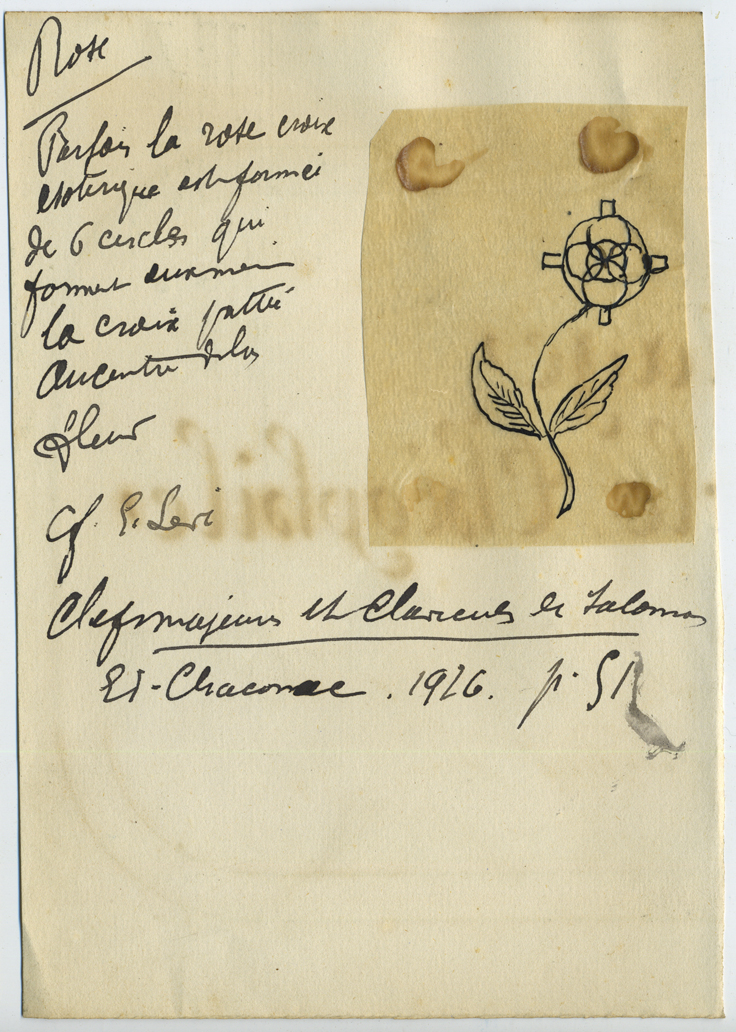 Rose
Parfois la rose croix
ésotérique est formée
de 6 cercles qui
forment eux mêmes
la croix pattée
au centre de la
fleur
cf. E. Levi
Clefs majeures et Clavicules de Salomon
Ed. Chacornac. 1926. p. 51